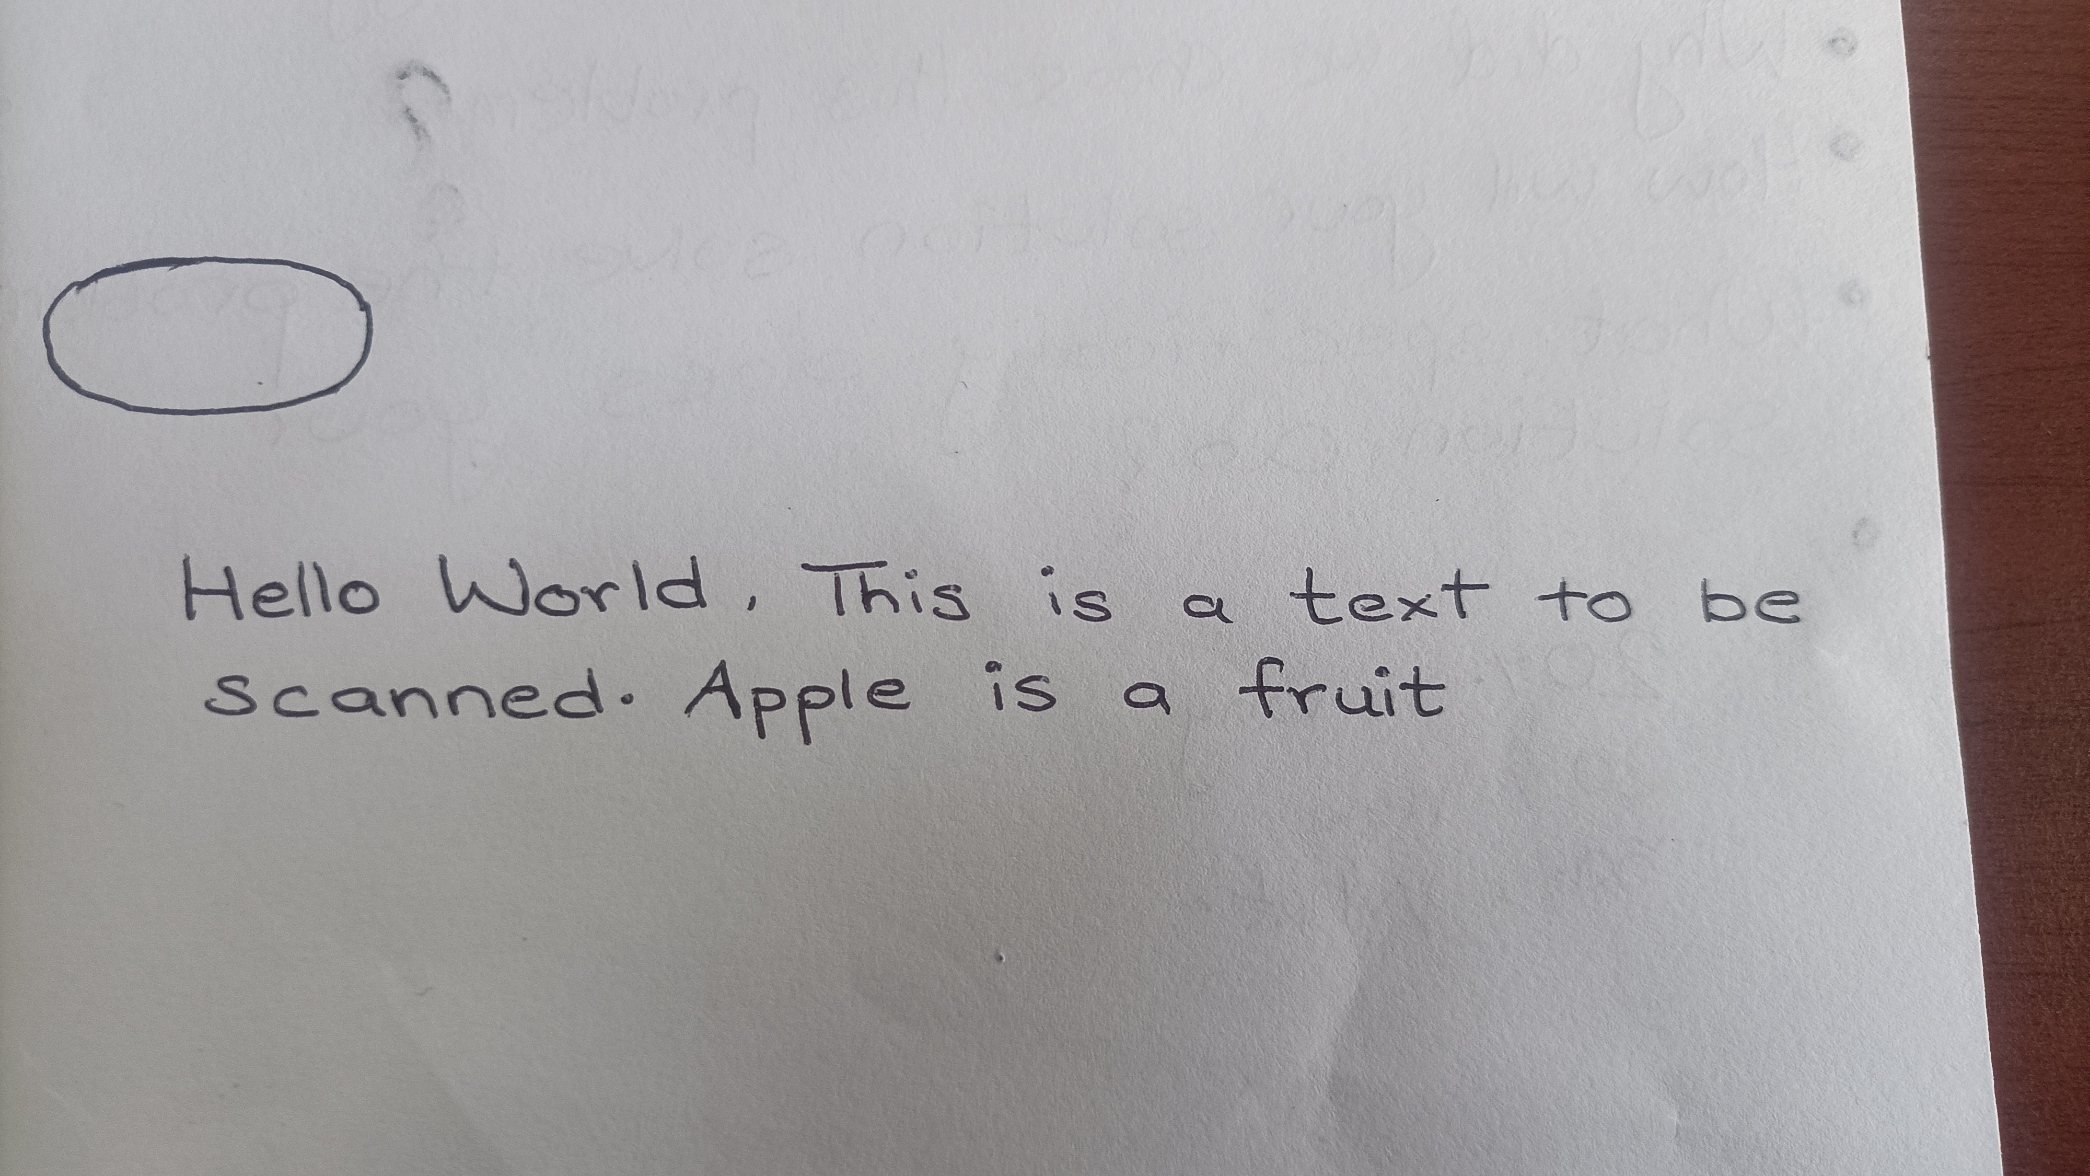 Hello World, This is a text to be
scanned. Apple is a fruit